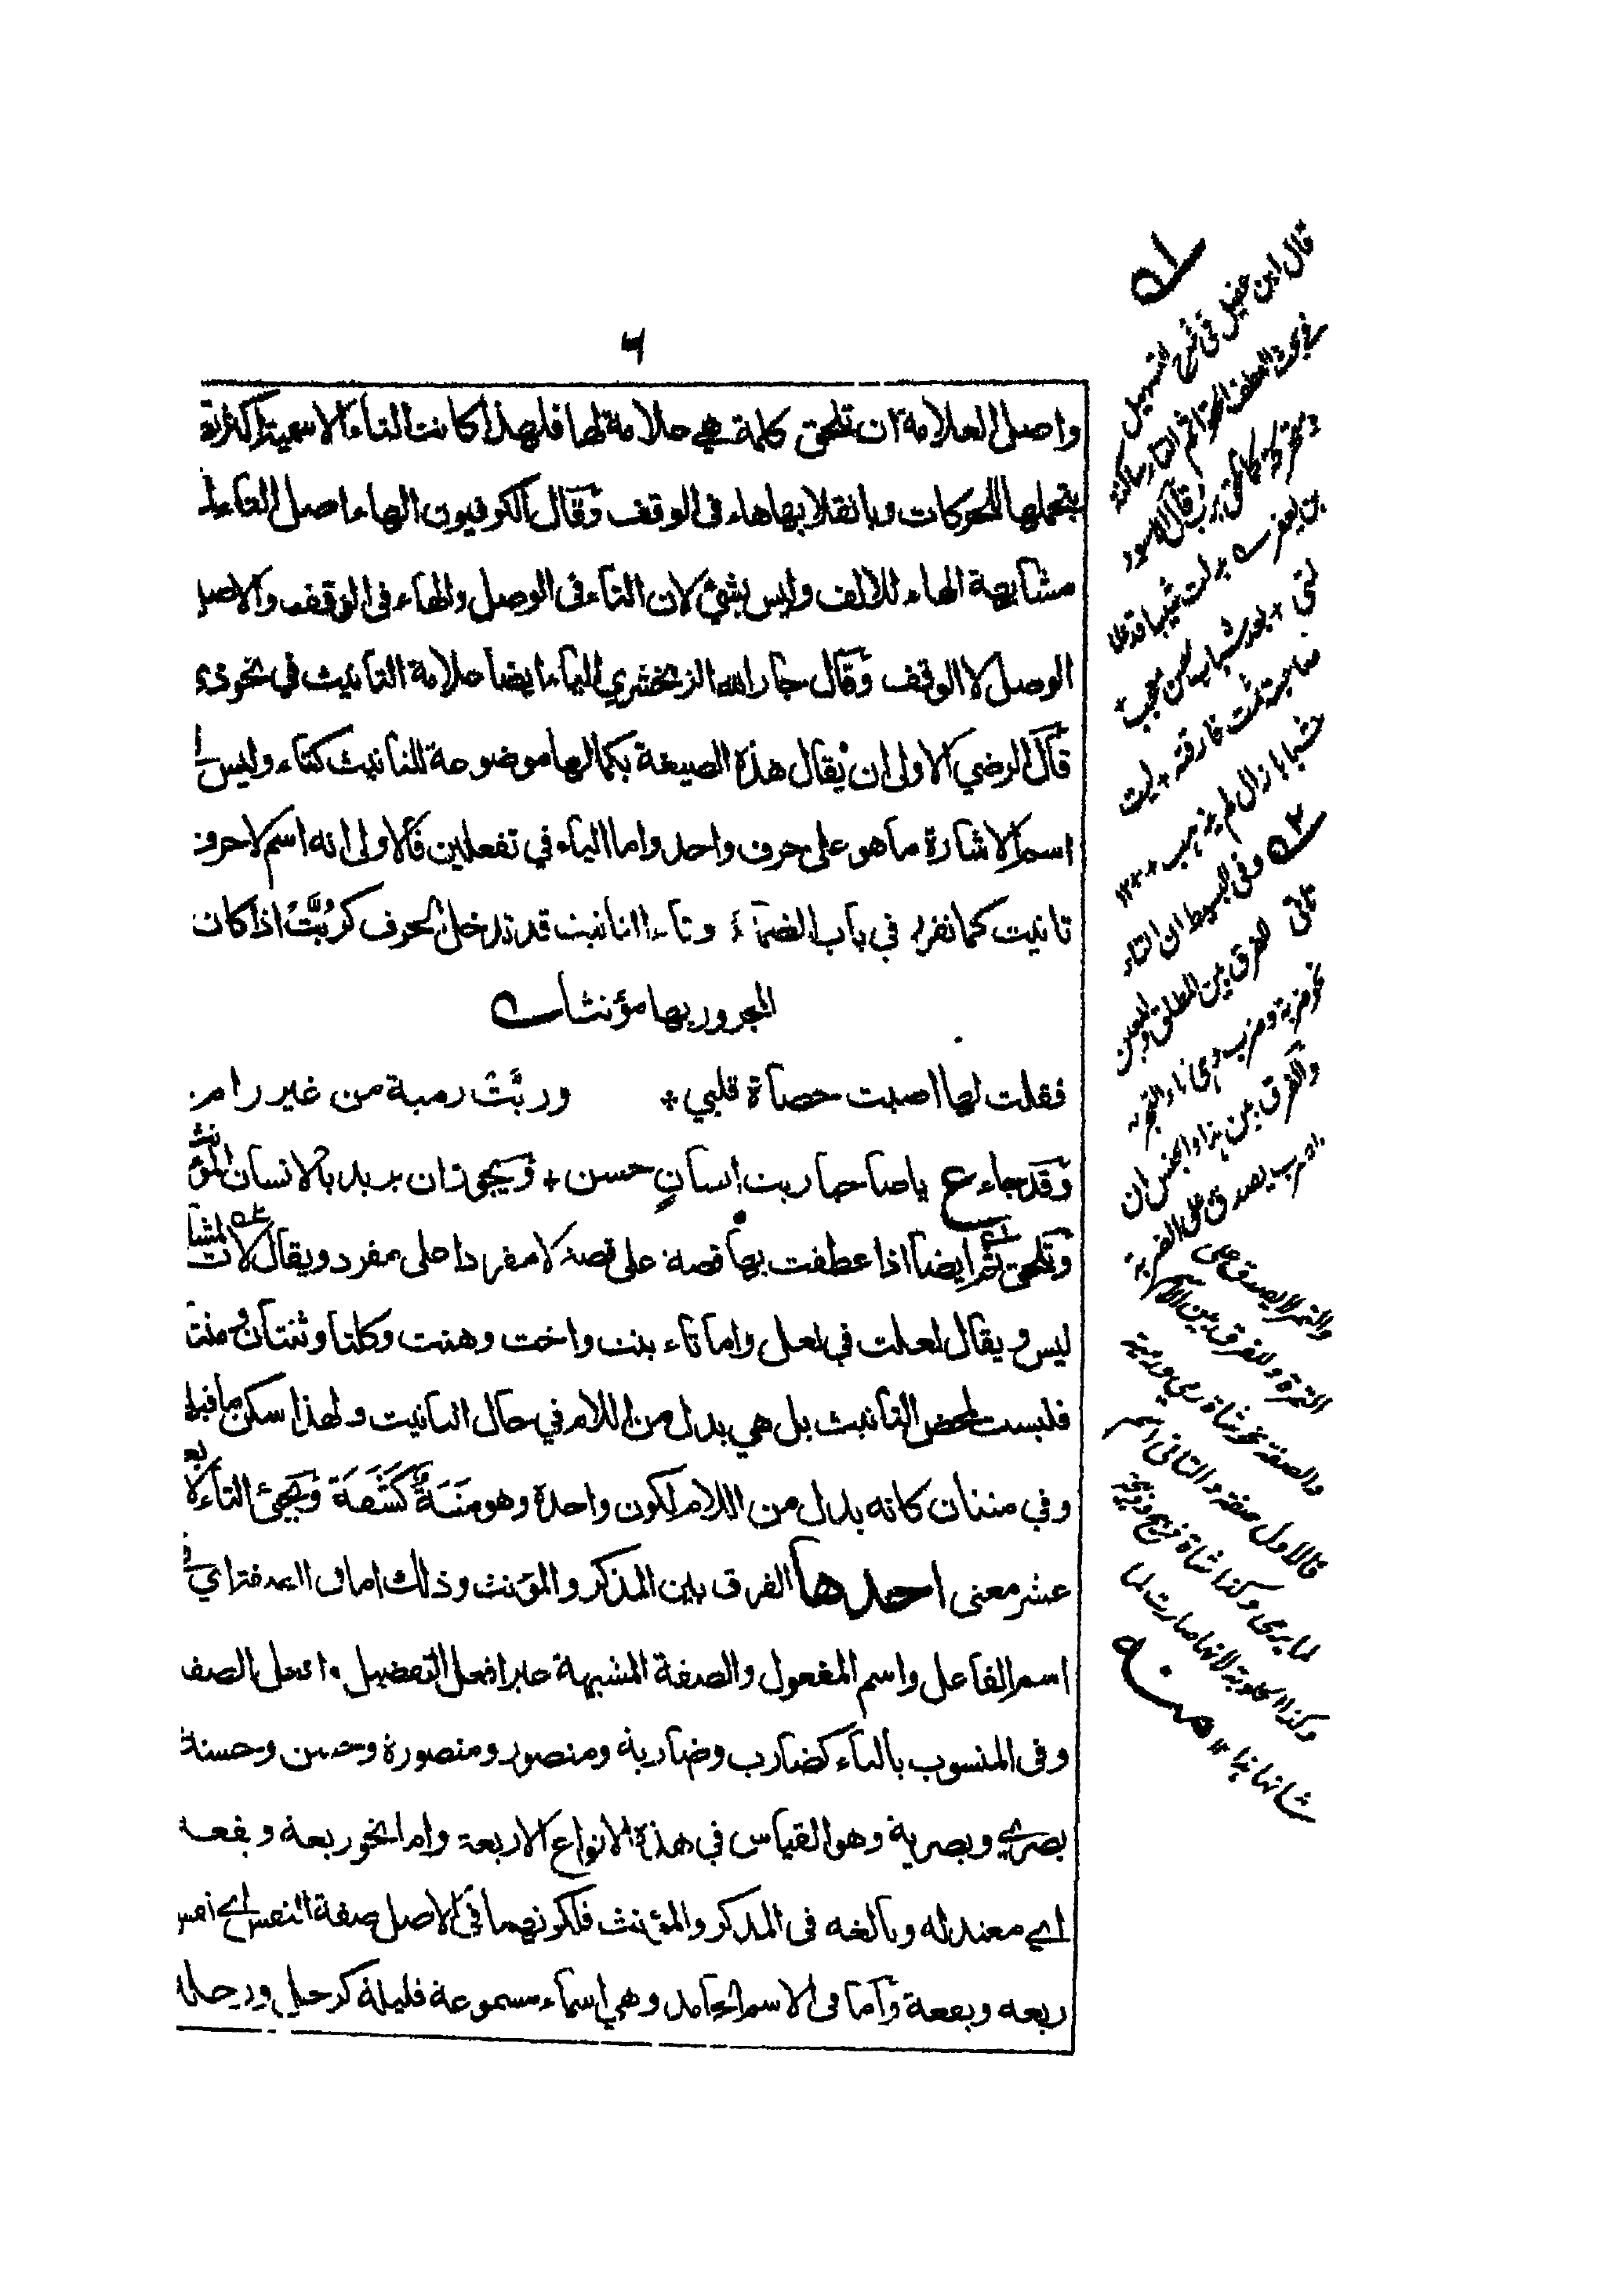 ٦
واصل العلامة ان تلحق كلمة هي علامة لها فلهذا كانت التاء الاسمية اكثر
بتحملها للحركات وبانقلابها هاء فى الوقف وقال الكوفيون الهاء اصل التاء
مشابهة الهاء للالف وليس بشئ لان التاء فى الوصل والهاء فى الوقف والاصل
الوصل لا الوقف وقال جار الله الزمخشري الياء ايضا علامة التانيث في نحو ذي
قال الرضي الاولى ان يقال هذه الصيغة بكمالها موضوعة للتانيث كتاء وليس
اسم الاشارة ما هو على حرف واحد واما الياء في تفعلين فالاولى انه اسم لا حرف
تانيث كما نقرر في باب الضمائر وتاء التانيث قد تدخل الحرف كربت اذا كان
المجرور بها مؤنثا
فقلت لها اصبت حصاة قلبي + وربت رمية من غير رام
وقد جاء ع يا صاحبا ربت انسان حسن + ويجوز ان يريد بالانسان المؤنث
وتلحق ثم ايضا اذا عطفت بها قصة على قصة لا مفردا على مفرد ويقال لات
ليس ويقال لعلت في لعل واما تاء بنت واخت وهنت وكلتا وثنتان ومنت
فليست لمحض التانيث بل هي بدل من اللام في حال التانيث ولهذا سكن ما قبلها
وفي منتان كانه بدل من اللام لكون واحدة وهو منة كشفة وتجئ التاء لاربعة
عشر معنى احدها الفرق بين المذكر والمؤنث وذلك اما في
اسم الفاعل واسم المفعول والصفة المشبهة غير افعل التفضيل وافعل الصفة
وفى المنسوب بالياء كضارب وضاربة ومنصور ومنصورة وحسن وحسنة
بصري وبصرية وهو القياس في هذه الانواع الاربعة واما نحو ربعة ويفعة
اي معتدلة وبالغه فى المذكر والمؤنث فلكونهما في الاصل صفة النفس اي نفس
ربعه ويفعة واما فى الاسم الجامد وهي اسماء مسموعة قليلة كرجل ورجلة
قال ابن عقيل في شرح التسهيل
بن يعفر بدلت شيبا قد علا
لمتي + بعد شباب حسن معجب
صاحبته ثمت فارقته + ليت
شبابا زال لم يذهب ١٢
وفى البسيط ان التاء
تاتي للفرق بين المطلق والمعين
نحو ضربة وضرب وهي تاء
والفرق بين هذا والجنس ان
الضرب يصدق على الضربة
والتمر لا يصدق على
التمرة وللفرق بين الاسم
والصفة نحو شاة رمي ورمية
فالاول صفة والثاني اسم
لما يرمى وكذا شاة ذبيح وذبيحة
وكذا الحلوبة لانها صارت لما
شانها هذا ١٢ منه